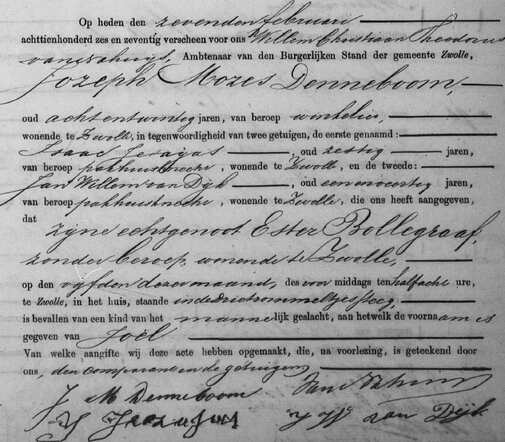 Op heden den zevenden februari
achttienhonderd zes en zeventig verscheen voor ons Willem Christiaan Theodorus
van der Ambtenaar van den Burgerlijken Stand der gemeente Zwolle,
Jozeph Mozes Denneboom,
oud achtentwintig jaren, van beroep winkelier,
wonende te Zwolle, in tegenwoordigheid van twee getuigen, de eerste genaamd:
Isaac Jesajas, oud zestig jaren,
van beroep pakhuisknecht, wonende te Zwolle, en de tweede:
Jan Willem van Dijk, oud eenenveertig jaren,
van beroep pakhuisknecht, wonende te Zwolle, die ons heeft aangegeven,
dat
zijne echtgenoot Ester Bollegraaf,
zonder beroep, wonende te Zwolle,
op den vyfden dezer maand, des voor middags ten half acht ure,
te Zwolle, in het huis, staande in de
is bevallen van een kind van het mannelijk geslacht, aan hetwelk de voornaam is
gegeven van Joël
Van welke aangifte wij deze acte hebben opgemaakt, die, na voorlezing, is geteekend door
ons, den comparant en de getuigen
J M Denneboom
J W van Dijk